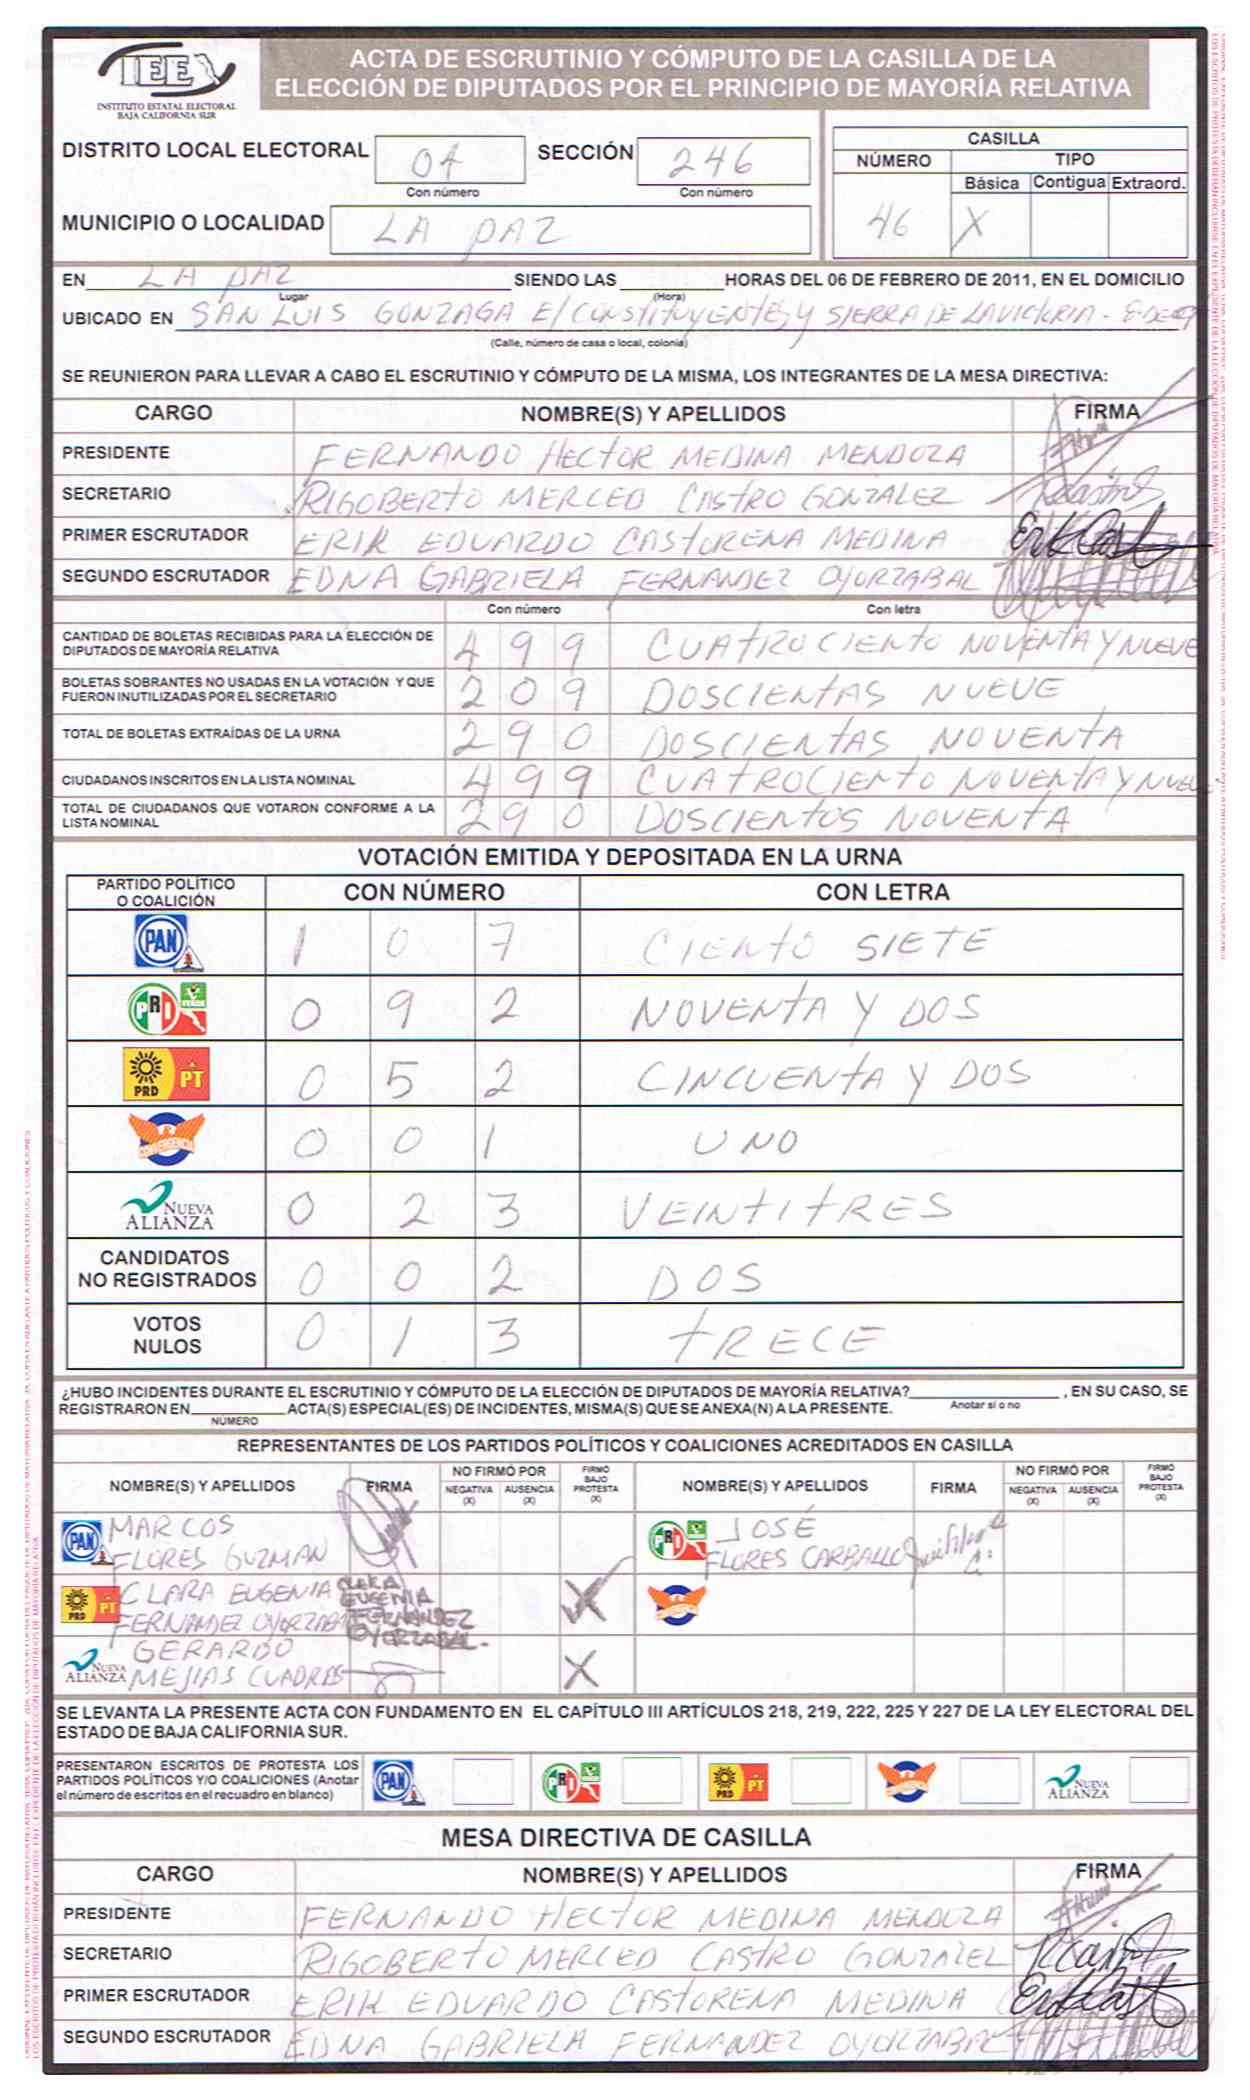 IEE
INSTITUTO ESTATAL ELECTORAL
BAJA CALIFORNIA SUR
ACTA DE ESCRUTINIO Y CÓMPUTO DE LA CASILLA DE LA
ELECCIÓN DE DIPUTADOS POR EL PRINCIPIO DE MAYORÍA RELATIVA
DISTRITO LOCAL ELECTORAL 04 SECCIÓN 246
Con número Con número
MUNICIPIO O LOCALIDAD LA PAZ
CASILLA
NÚMERO TIPO
Básica Contigua Extraord.
46 X
EN LA PAZ SIENDO LAS HORAS DEL 06 DE FEBRERO DE 2011, EN EL DOMICILIO
Lugar (Hora)
UBICADO EN SAN LUIS GONZAGA E/ CONSTITUYENTES Y SIERRA DE LA VICTORIA -
(Calle, número de casa o local, colonia)
SE REUNIERON PARA LLEVAR A CABO EL ESCRUTINIO Y CÓMPUTO DE LA MISMA, LOS INTEGRANTES DE LA MESA DIRECTIVA:
CARGO NOMBRE(S) Y APELLIDOS FIRMA
PRESIDENTE FERNANDO HECTOR MEDINA MENDOZA
SECRETARIO RIGOBERTO MERCED CASTRO GONZALEZ
PRIMER ESCRUTADOR ERIK EDUARDO CASTORENA MEDINA
SEGUNDO ESCRUTADOR EDNA GABRIELA FERNANDEZ OYORZABAL
Con número Con letra
CANTIDAD DE BOLETAS RECIBIDAS PARA LA ELECCIÓN DE
DIPUTADOS DE MAYORÍA RELATIVA 4 9 9 CUATROCIENTO NOVENTA Y NUEVE
BOLETAS SOBRANTES NO USADAS EN LA VOTACIÓN Y QUE
FUERON INUTILIZADAS POR EL SECRETARIO 2 0 9 DOSCIENTAS NUEVE
TOTAL DE BOLETAS EXTRAÍDAS DE LA URNA 2 9 0 DOSCIENTAS NOVENTA
CIUDADANOS INSCRITOS EN LA LISTA NOMINAL 4 9 9 CUATROCIENTO NOVENTA Y NUEVE
TOTAL DE CIUDADANOS QUE VOTARON CONFORME A LA
LISTA NOMINAL 2 9 0 DOSCIENTOS NOVENTA
VOTACIÓN EMITIDA Y DEPOSITADA EN LA URNA
PARTIDO POLÍTICO
O COALICIÓN CON NÚMERO CON LETRA
PAN 1 0 7 CIENTO SIETE
PRI VERDE 0 9 2 NOVENTA Y DOS
PRD PT 0 5 2 CINCUENTA Y DOS
CONVERGENCIA 0 0 1 UNO
NUEVA ALIANZA 0 2 3 VEINTITRES
CANDIDATOS
NO REGISTRADOS 0 0 2 DOS
VOTOS
NULOS 0 1 3 TRECE
¿HUBO INCIDENTES DURANTE EL ESCRUTINIO Y CÓMPUTO DE LA ELECCIÓN DE DIPUTADOS DE MAYORÍA RELATIVA? , EN SU CASO, SE
REGISTRARON EN ACTA(S) ESPECIAL(ES) DE INCIDENTES, MISMA(S) QUE SE ANEXA(N) A LA PRESENTE. Anotar sí o no
NÚMERO
REPRESENTANTES DE LOS PARTIDOS POLÍTICOS Y COALICIONES ACREDITADOS EN CASILLA
NOMBRE(S) Y APELLIDOS FIRMA NO FIRMÓ POR NEGATIVA (X) AUSENCIA (X) FIRMÓ BAJO PROTESTA (X) NOMBRE(S) Y APELLIDOS FIRMA NO FIRMÓ POR NEGATIVA (X) AUSENCIA (X) FIRMÓ BAJO PROTESTA (X)
PAN MARCOS
FLORES GUZMAN
PRI JOSÉ
FLORES CARBALLO
PRD PT CLARA EUGENIA
FERNANDEZ OYORZABAL
CLARA
EUGENIA
FERNANDEZ
OYORZABAL.
X
CONVERGENCIA
NUEVA ALIANZA GERARDO
MEJIAS CUADRAS X
SE LEVANTA LA PRESENTE ACTA CON FUNDAMENTO EN EL CAPÍTULO III ARTÍCULOS 218, 219, 222, 225 Y 227 DE LA LEY ELECTORAL DEL
ESTADO DE BAJA CALIFORNIA SUR.
PRESENTARON ESCRITOS DE PROTESTA LOS
PARTIDOS POLÍTICOS Y/O COALICIONES (Anotar
el número de escritos en el recuadro en blanco)
PAN PRI PRD PT CONVERGENCIA NUEVA ALIANZA
MESA DIRECTIVA DE CASILLA
CARGO NOMBRE(S) Y APELLIDOS FIRMA
PRESIDENTE FERNANDO HECTOR MEDINA MENDOZA
SECRETARIO RIGOBERTO MERCED CASTRO GONZALEZ
PRIMER ESCRUTADOR ERIK EDUARDO CASTORENA MEDINA
SEGUNDO ESCRUTADOR EDNA GABRIELA FERNANDEZ OYORZABAL